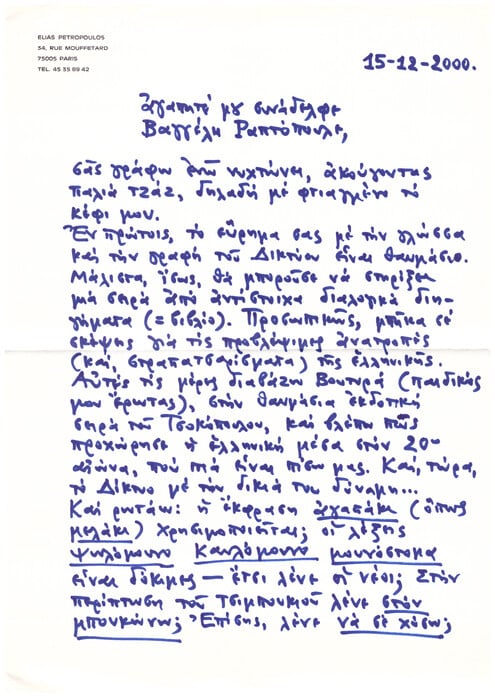 ELIAS PETROPOULOS
34, RUE MOUFFETARD
75005 PARIS
TEL. 45 35 89 42
15-12-2000.
ἀγαπητέ μου συνάδελφε
Βαγγέλη Ραπτόπουλε,
σᾶς γράφω ἐνῶ νυχτώνει, ἀκούγοντας
παλιὰ τζάζ, δηλαδὴ μὲ φτιαγμένο τὸ
κέφι μου.
Ἐν πρώτοις, τὸ εὕρημα σας μὲ τὴν γλῶσσα
καὶ τὴν γραφὴ τοῦ Δικτύου εἶναι θαυμάσιο.
Μάλιστα, ἴσως, θὰ μποροῦσε νὰ στηρίξει
μιὰ σειρὰ ἀπὸ ἀντίστοιχα διαλογικὰ διη-
γήματα (= βιβλίο). Προσωπικῶς, μπῆκα σὲ
σκέψεις γιὰ τὶς προβλέψιμες ἀνατροπὲς
(καί, στραπατσαρίσματα) τῆς ἑλληνικῆς.
Αὐτὲς τὶς μέρες διαβάζω Βουτυρᾶ (παιδικός
μου ἔρωτας), στὴν θαυμάσια ἐκδοτικὴ
σειρὰ τοῦ Τσοκόπουλου, καὶ βλέπω πῶς
προχώρησε ἡ ἑλληνικὴ μέσα στὸν 20ὸ
αἰῶνα, ποὺ πιὰ εἶναι πίσω μας. Καί, τώρα,
τὸ Δίκτυο μὲ τὴν δικιά του δύναμη...
Καὶ ρωτάω: ἡ ἔκφραση ἀρχαπάκι (ὅπως
μελάκι) χρησιμοποιεῖται; οἱ λέξεις
ψωλόμουνο καυλόμουνο μουνόστομα
εἶναι δόκιμες — ἔτσι λένε οἱ νέοι; Στὴν
περίπτωση τοῦ Τσιμπουκιοῦ λένε στὸν
μπουκώνω; Ἐπίσης, λένε νὰ σὲ χύσω;